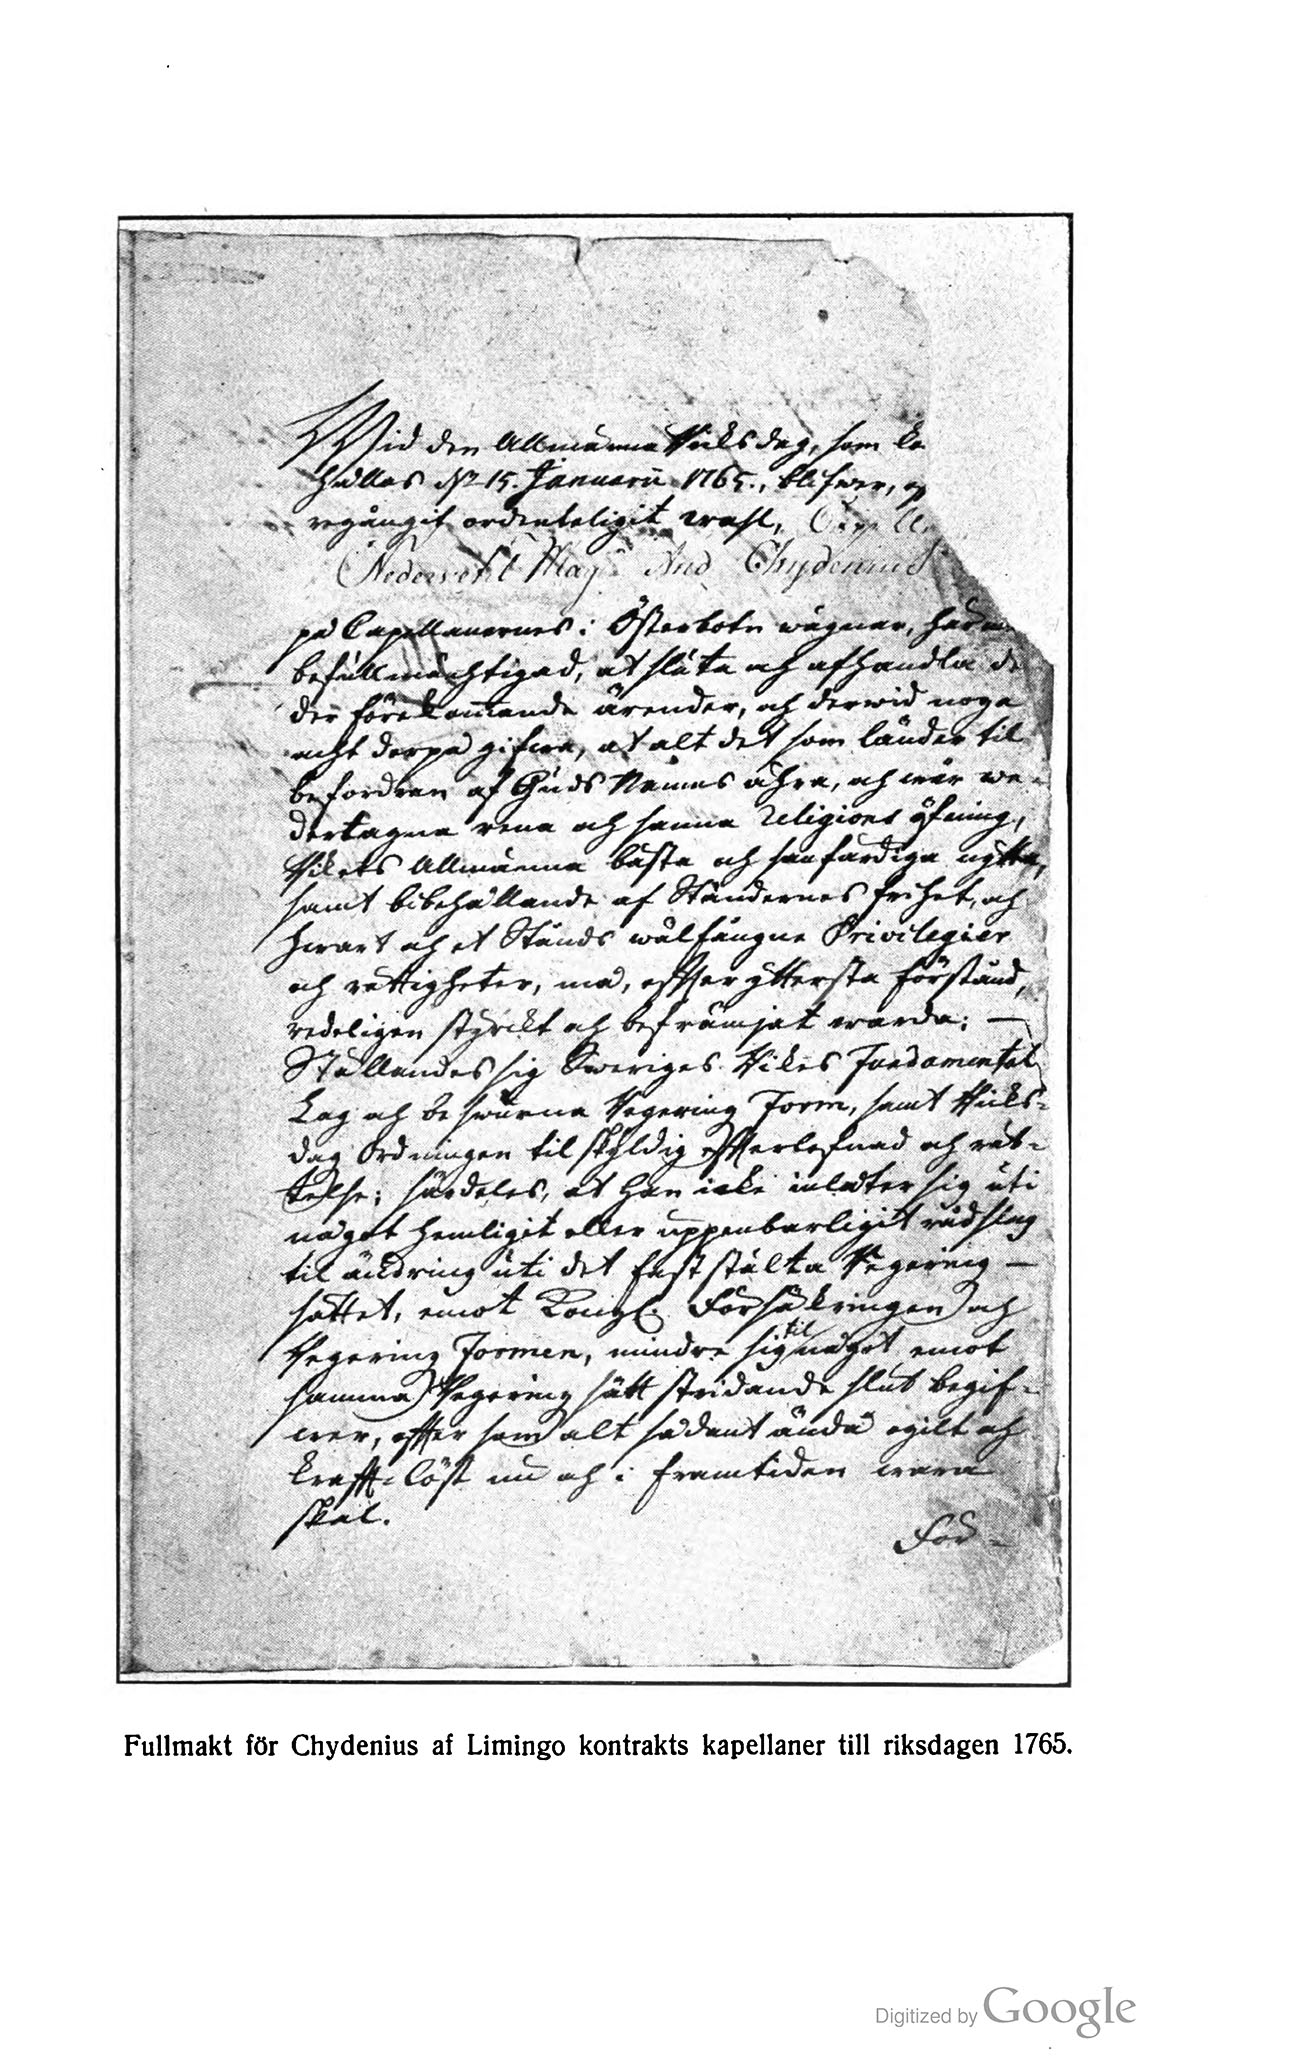 Wid den Allmänna Riksdag, som
hållas d. 15. Januarii 1765., blifwer,
ordenteligit wahl,
Nedervetil Mag: And Chydenius
på Capellanernes i Österbotn wägnar,
befullmächtigad, at sluta och afhandla de
der förekommande ärender, och derwid noga
acht derpå gifwa, at alt det som länder til
befordran af Guds Namns ähra, och wår we-
dertagna rena och sanna Religions öfning,
Rikets Allmänna bästa och sanfärdiga nytta,
samt bibehållande af Ständernes frihet, och
hwart och et Stånds wälfångne Privilegier
och rättigheter, må, efter yttersta förstånd,
redeligen styrckt och befrämjat warda; —
Ställandes sig Sweriges Rikes Fundamental
Lag och beswurna Regering Form, samt Riks-
dag Ordningen til skyldig efterlefnad och rät-
telse; särdeles, at han icke inlåter sig uti
något hemligit eller uppenbarligit rådslag
til ändring uti det fastställta Regering —
sättet, emot Kongl. Försäkringen och
Regering Formen, mindre sig til något emot
samma Regering sätt stridande slut begif-
wer, efter som alt sådant ändå ogilt och
krafft-löst nu och i framtiden wara
skal.
För-
Fullmakt för Chydenius af Limingo kontrakts kapellaner till riksdagen 1765.
Digitized by Google